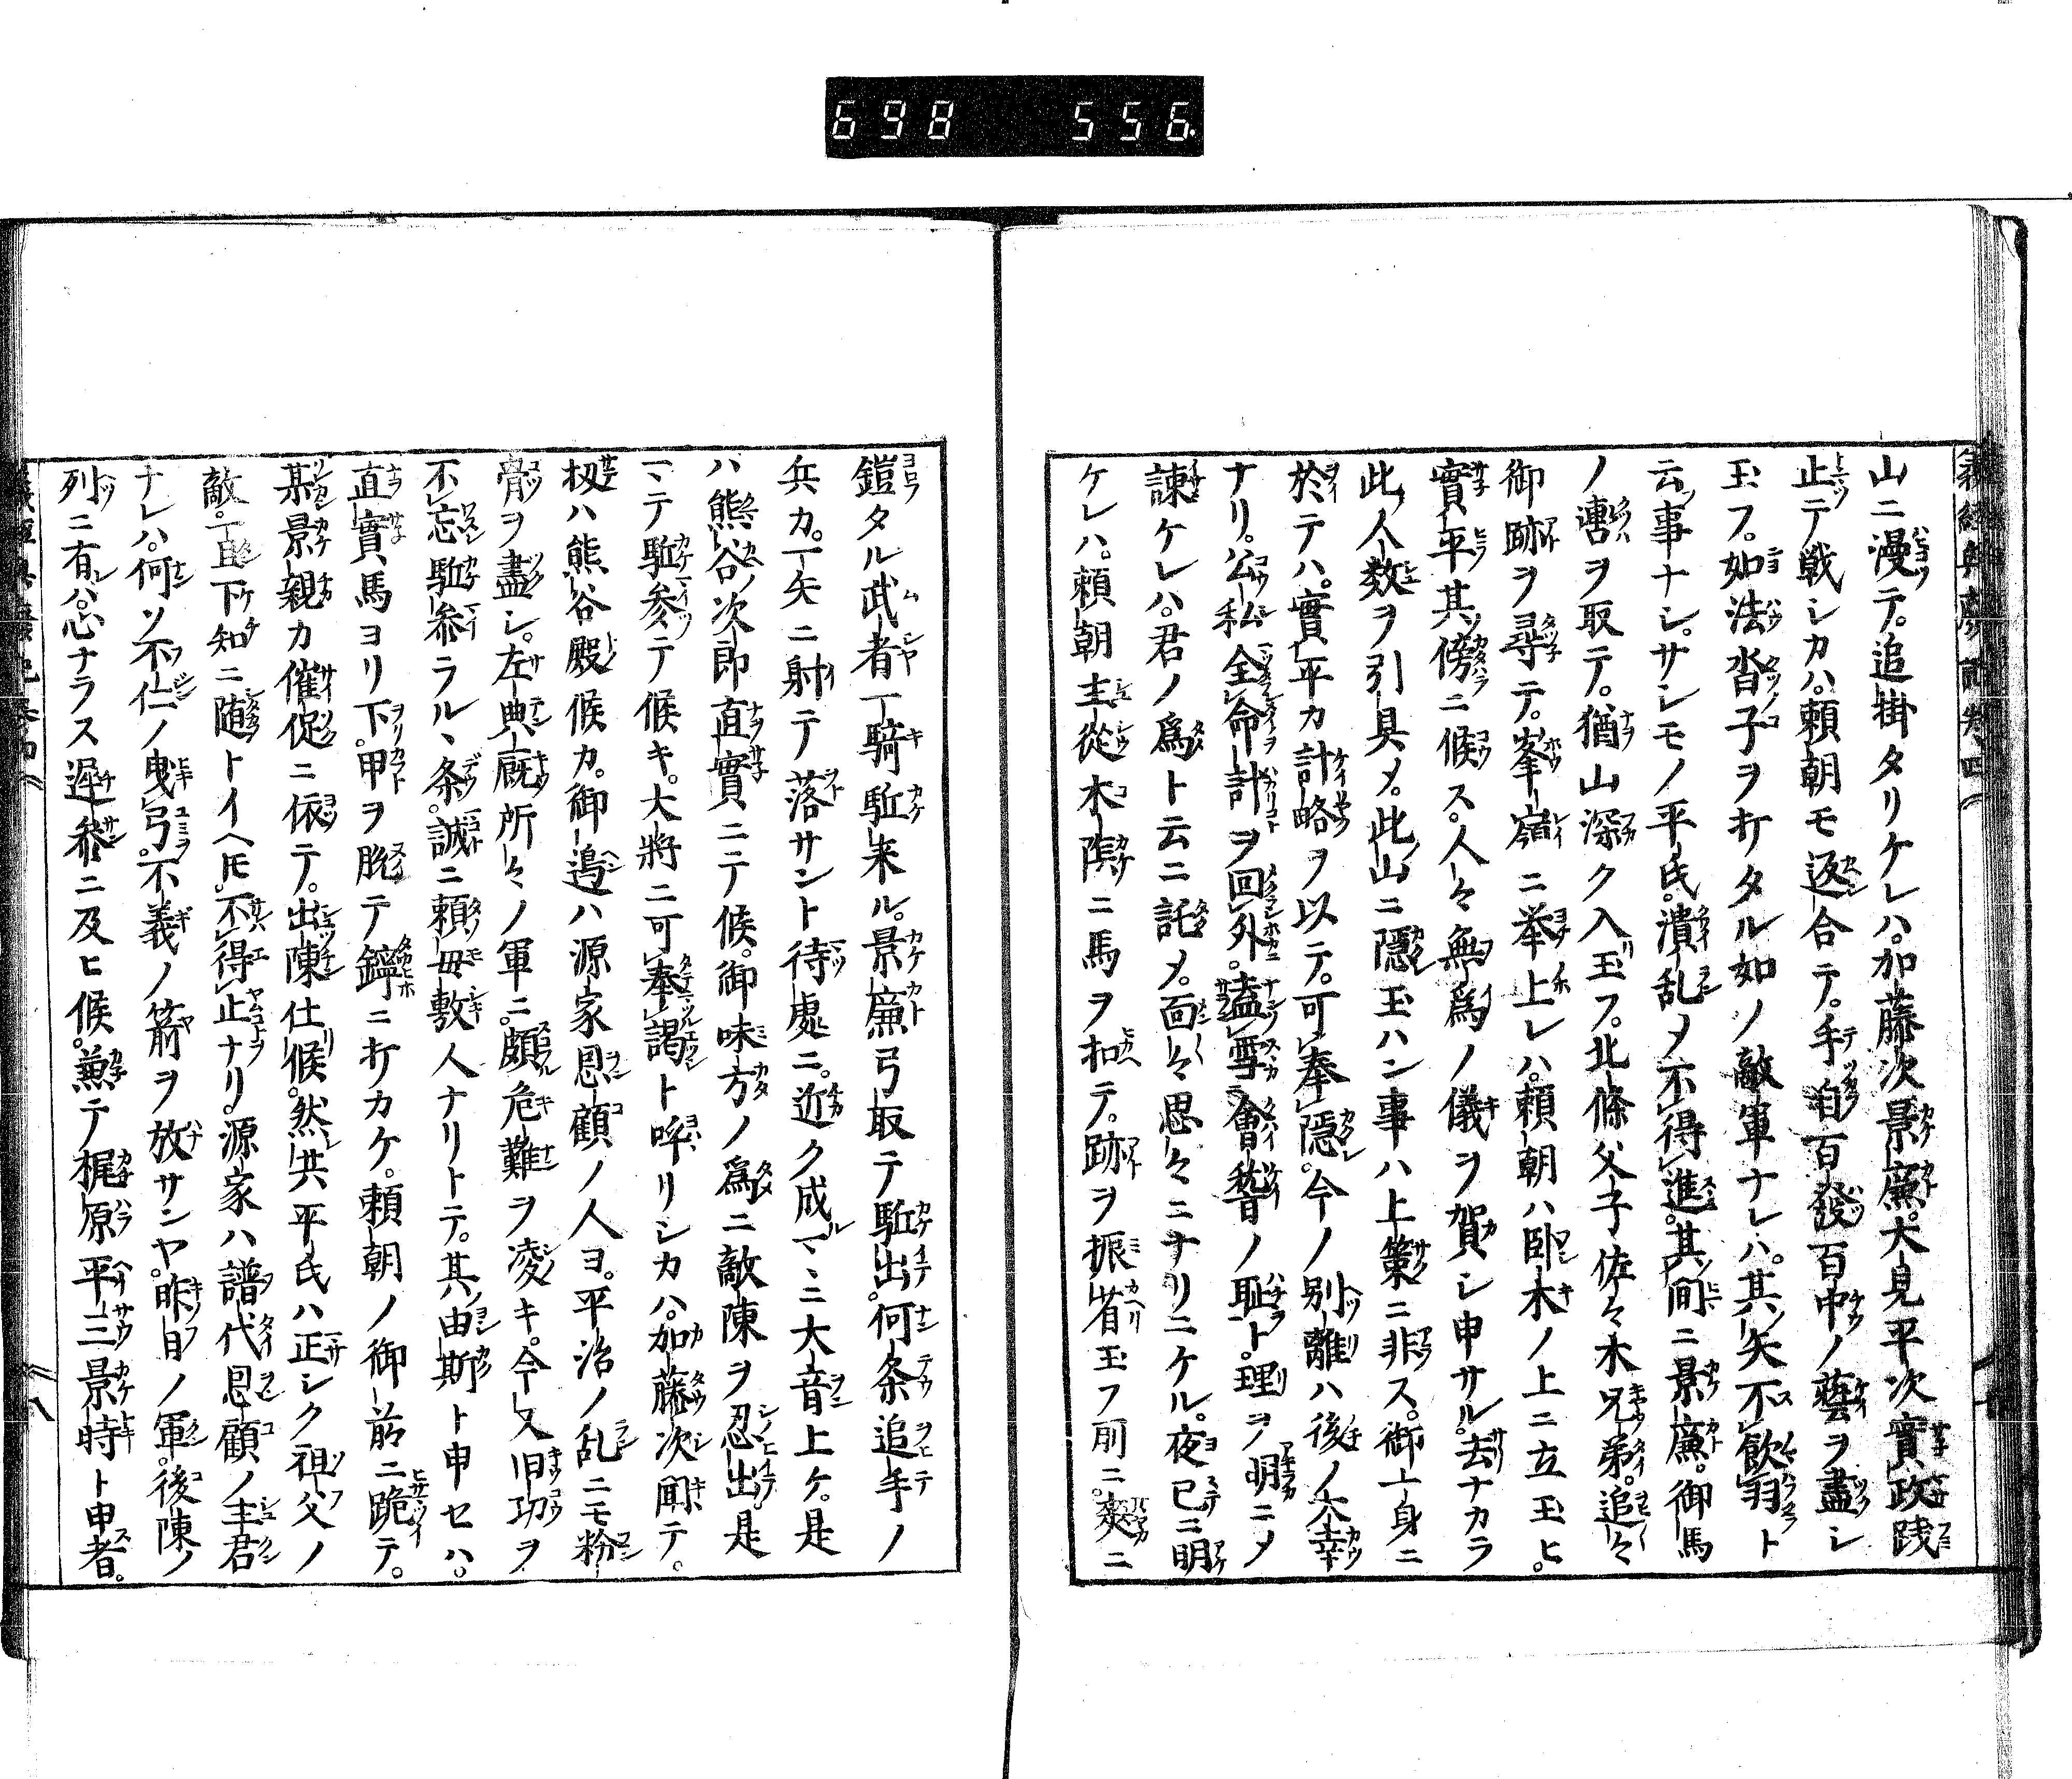 698 556
山ニ漫テ。追掛タリケレハ。加藤次景廉。大見平次實政踐
止テ戦シカハ。頼朝モ返合テ。手自百發百中ノ藝ヲ盡シ
玉フ。如法沓子ヲ打タル如ノ敵軍ナレハ。其矢不飲羽ト
云事ナシ。サシモノ平氏。潰乱メ不得進。其間ニ景廉。御馬
ノ轡ヲ取テ。猶山深ク入玉フ。北條父子佐々木兄弟。追々
御跡ヲ尋テ。峯嶺ニ挙上レハ。頼朝ハ臥木ノ上ニ立玉ヒ。
實平其傍ニ候ス。人々無為ノ儀ヲ賀シ申サル。去ナカラ
此人数ヲ引具メ。此山ニ隠玉ハン事ハ上策ニ非ス。御一身ニ
於テハ。實平カ計略ヲ以テ。可奉隠。今ノ別離ハ後ノ大幸
ナリ。公私全命計ヲ回外。盍雪會稽ノ耻ト。理ヲ明ニメ
諫ケレハ。君ノ為ト云ニ託メ。面々思々ニナリニケル。夜已ニ明
ケレハ。頼朝主從木陰ニ馬ヲ扣テ。跡ヲ振省玉フ所ニ。爽ニ
鎧タル武者一騎駈来ル。景廉弓取テ駈出。何条追手ノ
兵カ。一矢ニ射テ落サント待處ニ。近ク成マヽニ大音上ケ。是
ハ熊谷ノ次郎直實ニテ候。御味方ノ為ニ敵陳ヲ忍出。是
マテ駈参テ候キ。大将ニ可奉謁ト呼リシカハ。加藤次聞テ。
扨ハ熊谷殿候カ。御邉ハ源家恩顧ノ人ヨ。平治ノ乱ニモ粉
骨ヲ盡シ。左典厩所々ノ軍ニ。頗危難ヲ凌キ。今又旧功ヲ
不忘駈参ラルヽ条。誠ニ頼母敷人ナリトテ。其由斯ト申セハ。
直實馬ヨリ下。甲ヲ脱テ鐴ニ打カケ。頼朝ノ御前ニ跪テ。
某景親カ催促ニ依テ。出陳仕候。然共平氏ハ正シク祖父ノ
敵。一旦下知ニ随トイヘ𪜈。不得止ナリ。源家ハ譜代恩顧ノ主君
ナレハ。何ソ不仁ノ曳弓。不義ノ箭ヲ放サンヤ。昨日ノ軍。後陳ノ
列ニ有ハ。心ナラス遅参ニ及ヒ候。兼テ梶原平三景時ト申者。
八